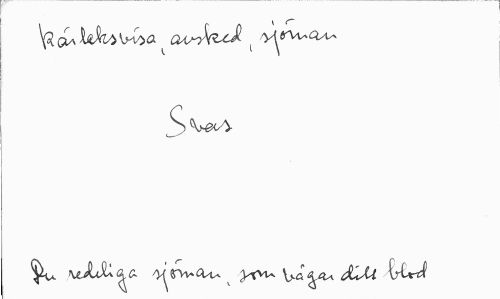 Kärleksvisa, avsked, sjöman
Svas
Du redeliga sjöman, som vågar ditt blod